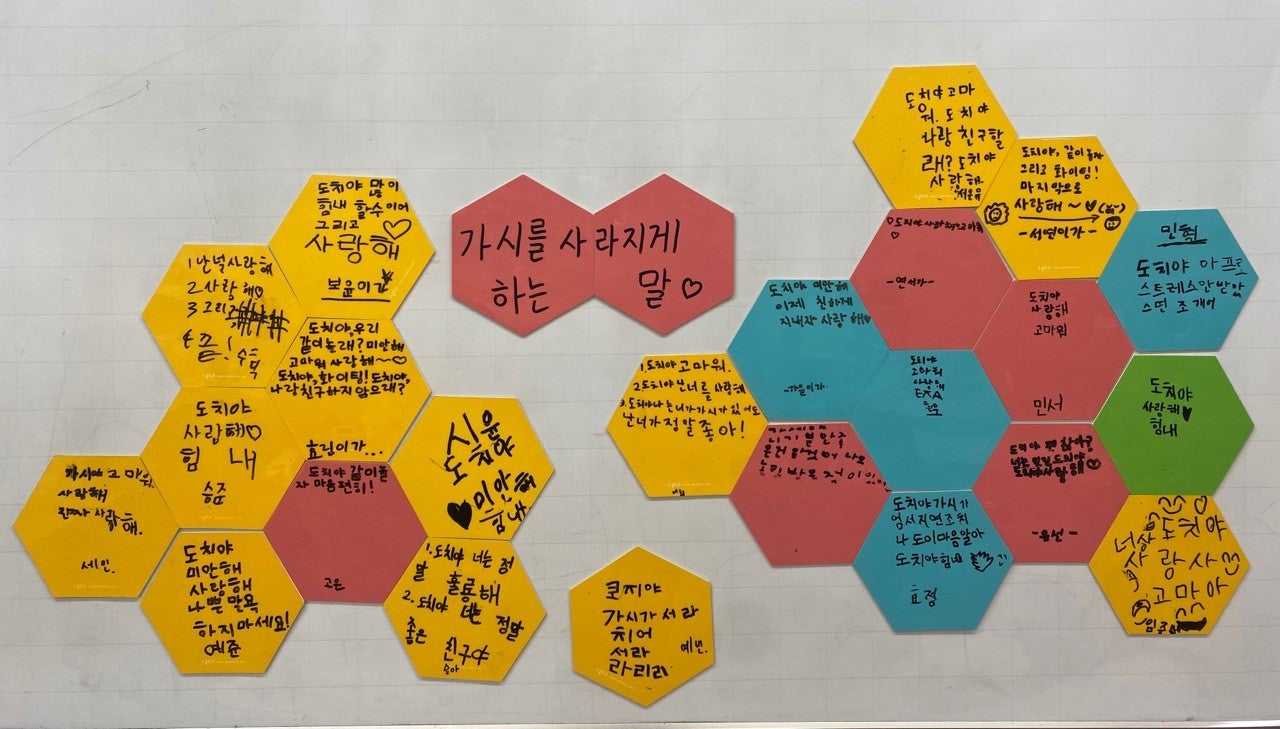 가시를 사라지게
하는 말♡
도치야 많이
힘내 할수이어
그리고
사랑해♡
보윤이가
1 난널사랑해
2 사랑해♡
3 그리고
끝!
도치야,우리
같이놀래?미안해
고마워 사랑해~♡
도치야,화이팅!도치야,
나랑친구하지않으래?
효린이가...
도치야
사랍해♡
힘 내
승준
시율
도치야
♥미안해
힘내
고마워
사랑해.
진짜사랑해.
세인.
도치야
미안해
사랑해
나쁜말욕
하지마세요!
예준
도치야 같이놀
자 마음편히!
고은
1.도치야 너는 정
말 훌륭해
2.도치야 너는 정말
좋은 친구야
승아
가시가 서라
치어
서라
라리리
예빈.
도치야고마
워. 도치야
나랑 친구할
래? 도치야
사랑해.
도치야, 같이놀자
그리고 화이팅!
마지막으로
사랑해~♥
-서연이가-
♡도치야사랑해
♡
-연서가-
민혁
도치야 아프로
스트레스안받았
스면 조개어
도치야 미안해
이제 친하게
지내자 사랑해♥
-가을이가-
도치야
사랑해
고마워
민서
1.도치야 고마워.
2.도치야 난 너를 사랑해
3.도치야나는너가가시가 있어도
난너가정말좋아!
도치야
고마워
사랑해
도치야
사랑해♥
힘내
도치야가시가
업서지면조치
나도이마음알아
도치야힘내
효정
도치야
사랑해
-유선-
너상도치야
사랑사
고마아